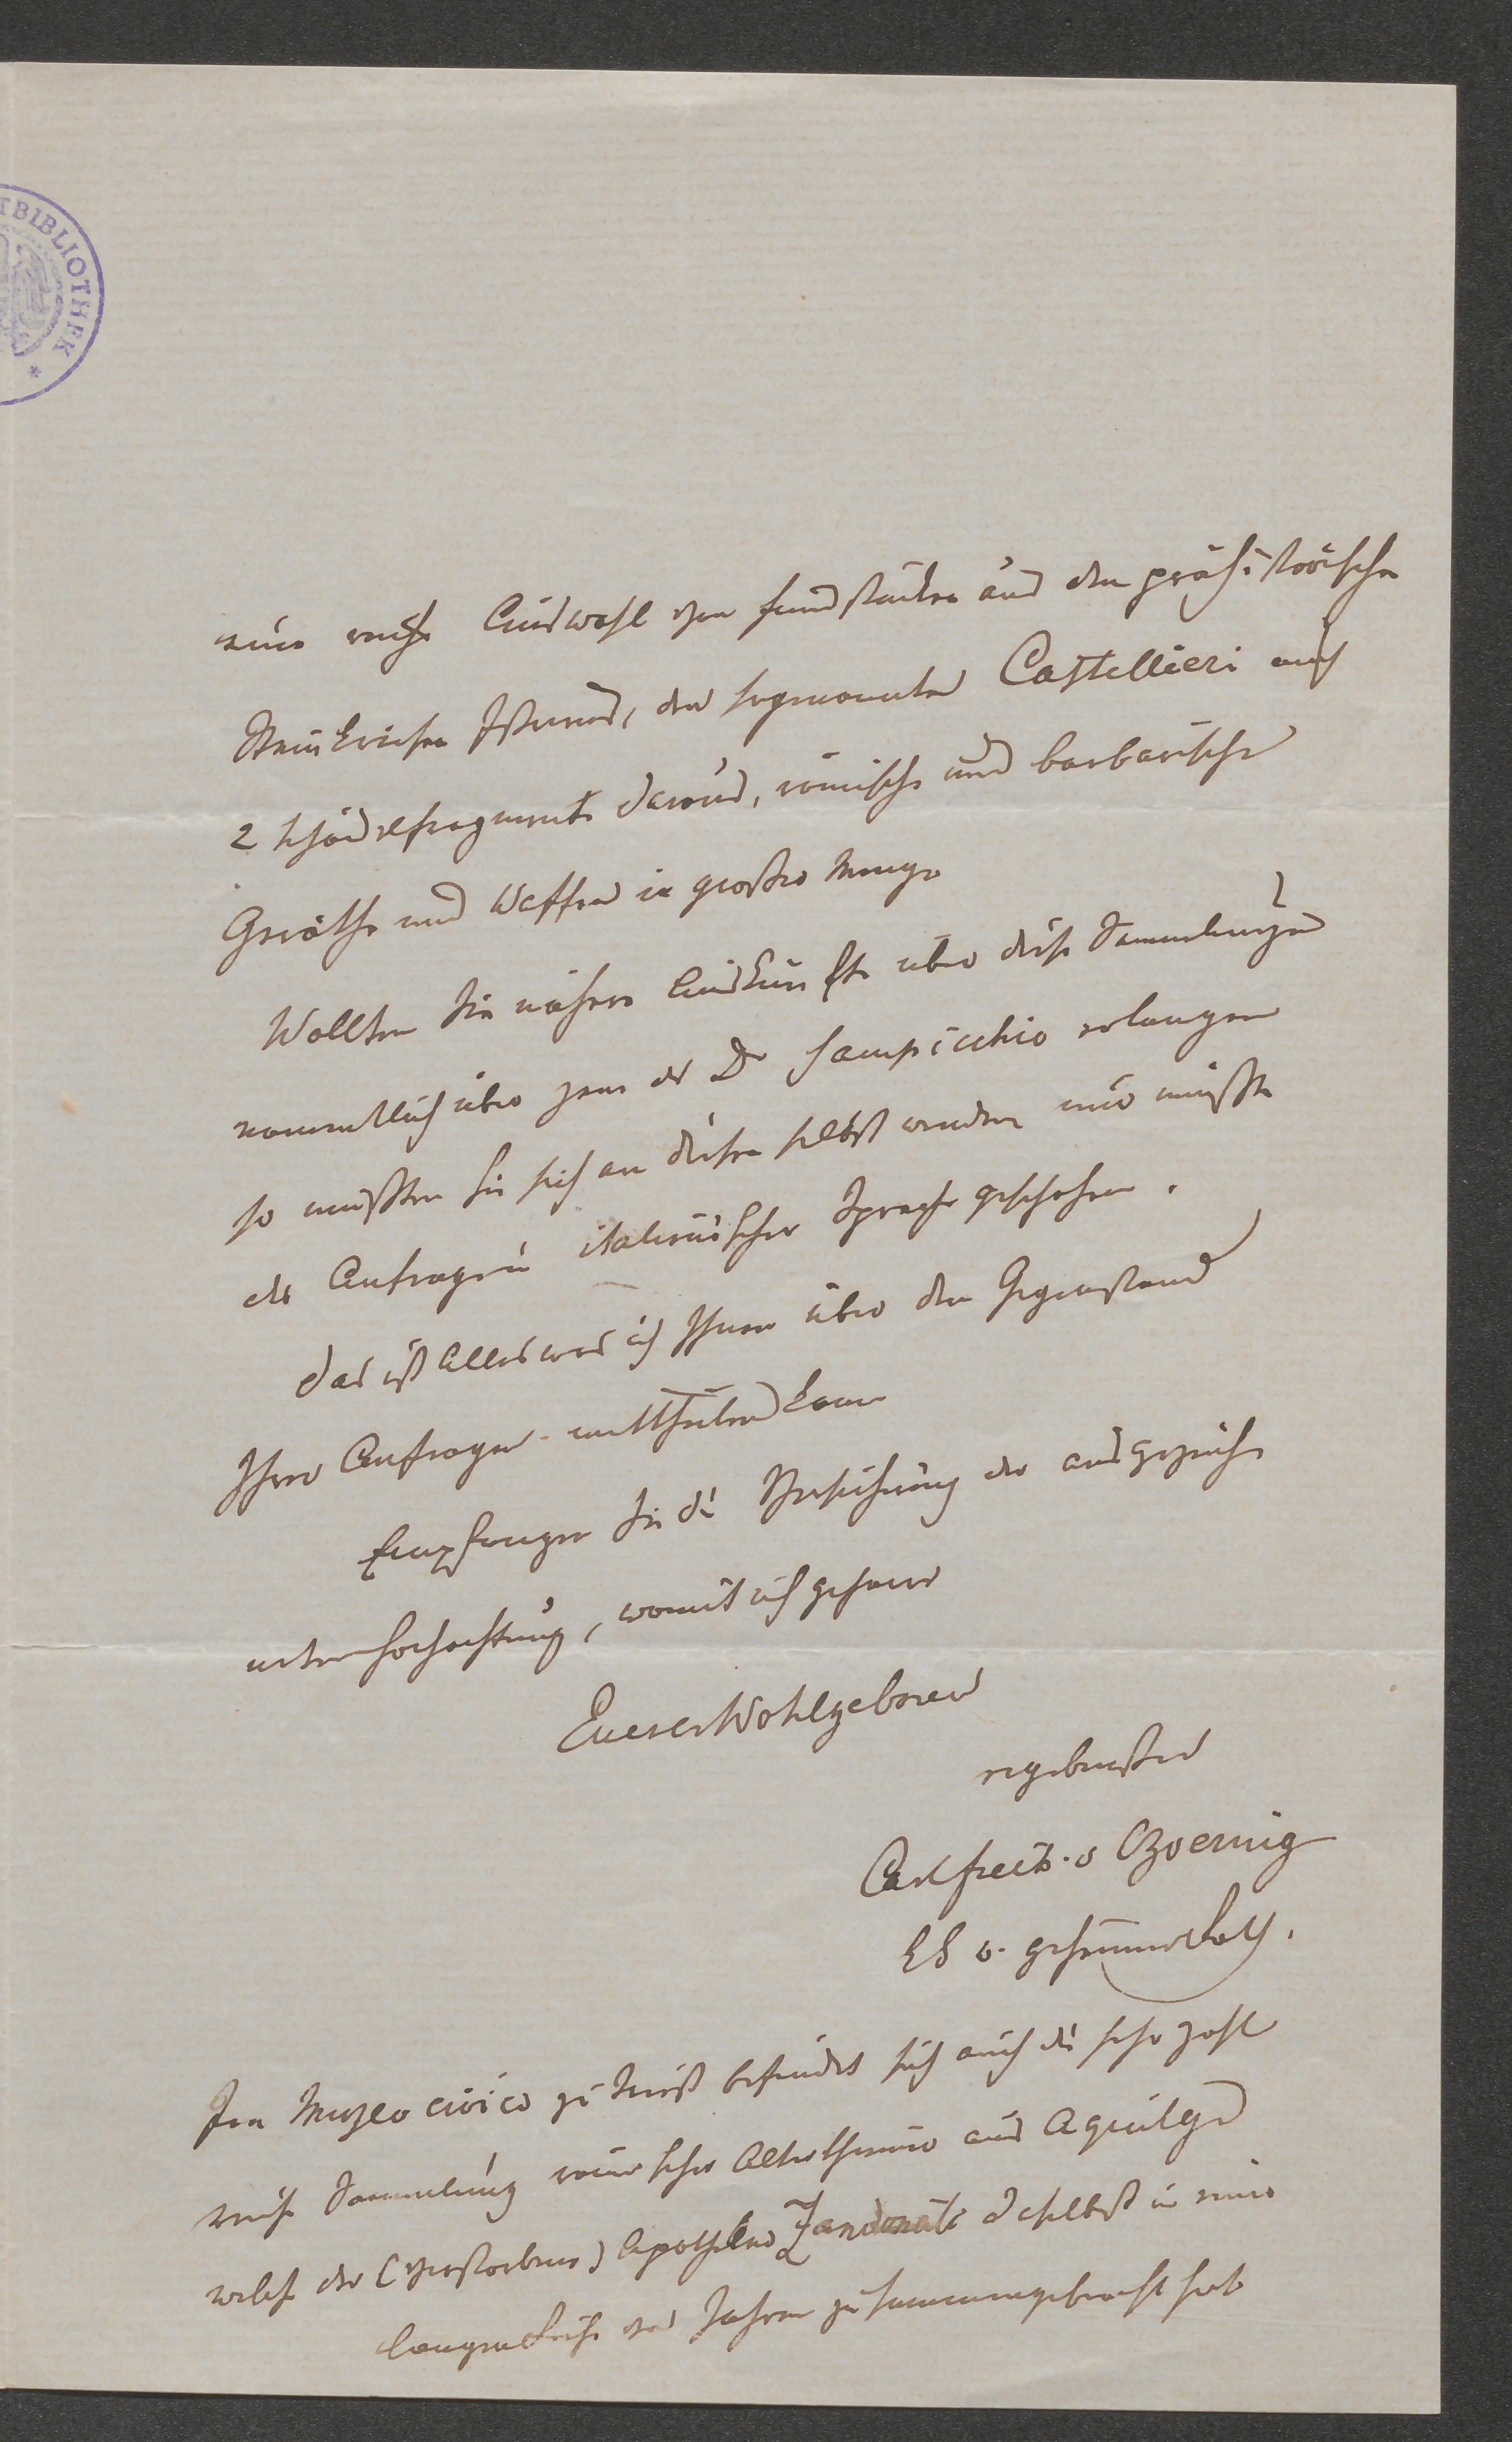 TBIBLIOTHEK *
eine reiche Auswahl von Fundstücken aus den prähistorischen
Steinkreisen Istriens, den sogenannten Castellieri auch
2 Schädelfragmente daraus, römische und barbarische
Geräthe und Waffen in großer Menge
Wollten Sie nähere Auskünfte über diese Sammlungen
namentlich über jene des Dr Sampicchio erlangen
so müßten Sie sich an diesen selbst wenden und müßte
die Anfrage in italienischer Sprache geschehen.
Das ist Alles was ich Ihnen über den Gegenstand
Ihrer Anfrage mittheilen kann
Empfangen Sie die Versicherung der ausgezeich
neten Hochachtung, womit ich geharre
Euerer Wohlgeboren
ergebenster
Carl Freih. v Czoernig
geheimer Rath.
Im Museo civico zu Triest befindet sich auch die sehr zahl
reiche Sammlung römischer Alterthümer aus Aquileja
welche der (verstorbene) Apotheker Zandonati daselbst in einer
langen Reihe von Jahren zusammengebracht hat